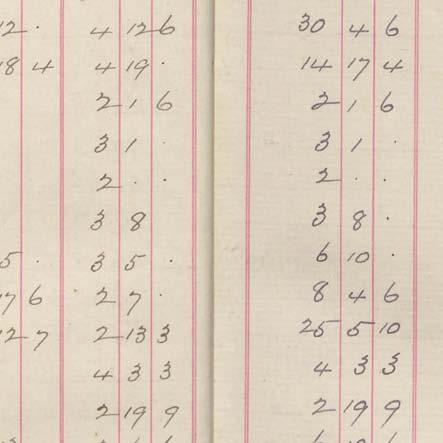 12 . 4 12 6 30 4 6
18 4 4 19 . 14 17 4
2 1 6 2 1 6
3 1 . 3 1 .
2 . . 2 . .
3 8 3 8 .
5 . 3 5 . 6 10 .
17 6 2 7 . 8 4 6
12 7 2 13 3 25 5 10
4 3 3 4 3 3
2 19 9 2 19 9